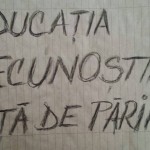 EDUCAȚIA
ECUNOȘTI
ȚĂ DE PĂRI